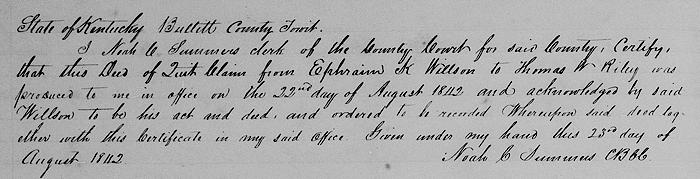 State of Kentucky Bullett County Towit.
I Noah C Summers clerk of the County Court for said County, Certify,
that this Deed of Quit Claim from Ephraim K Willson to Thomas W Riley was
produced to me in office on the 22nd day of August 1842 and acknowledged by said
Willson to be his act and deed, and ordered to be recorded Whereupon said deed tog-
ether with this Certificate in my said Office. Given under my hand this 23rd day of
August 1842 Noah C Summers CBCC